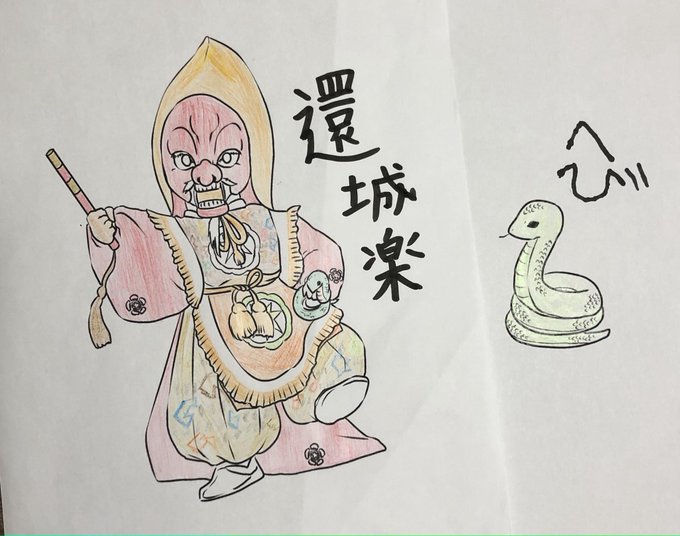 還城楽
へび